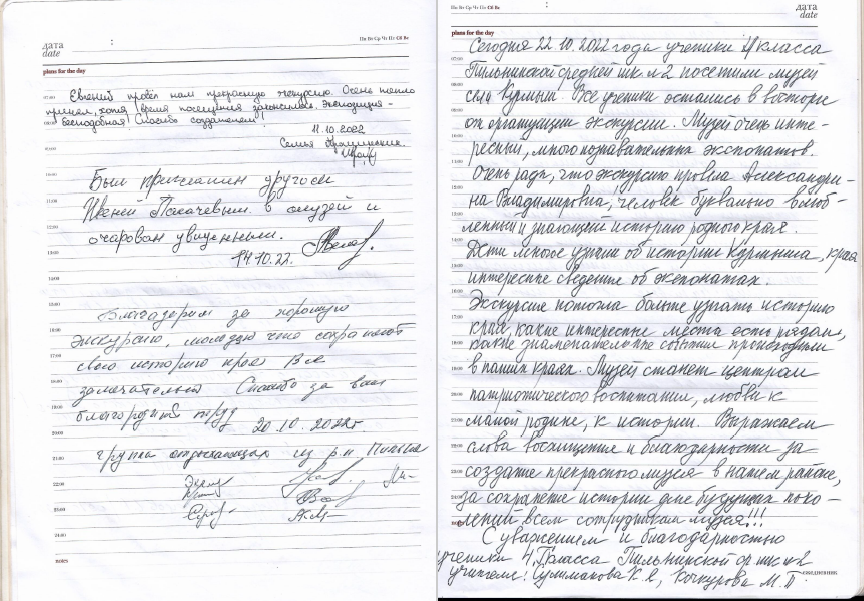 дата
date
:
Пн Вт Ср Чт Пт Сб Вс
plans for the day
07:00
Евгений провёл нам прекрасную экскурсию. Очень тепло
принял, хотя время посещения закончилось. Экспозиция -
08:00
бесподобная! Спасибо создателям!
11.10.2022
Семья
09:00
10:00
Был приглашин другом
11:00
в музей и
12:00
очарован увиденным.
13:00
14.10.22.
14:00
15:00
Благодарим за хорошую
16:00
экскурсию, молодцы что сохраняют
17:00
свою историю края Все
18:00
замечательно Спасибо за ваш
19:00
благородный труд
20:00
20.10.2022г.
21:00
группа отдыхающих из р.п. Пильна
22:00
23:00
24:00
notes
:
Пн Вт Ср Чт Пт Сб Вс
дата
date
plans for the day
Сегодня 22.10.2022 года ученики 4 класса
07:00
Пильнинской средней шк №2 посетили музей
08:00
села Курмыш. Все ученики остались в восторге
09:00
от организации экскурсии. Музей очень инте-
10:00
ресный, много познавательных экспонатов.
11:00
Очень рада, что экскурсию провела Александри-
12:00
на Владимировна, человек буквально влюб-
13:00
ленный и знающий историю родного края.
14:00
Дети многое узнали об истории Курмыша, края
15:00
интересные сведения об экспонатах.
16:00
Экскурсия помогла больше узнать историю
17:00
края, какие интересные места есть рядом,
какие знаменательные события происходили
18:00
в наших краях. Музей станет центром
19:00
патриотического воспитания, любви к
20:00
малой родине, к истории. Выражаем
21:00
слова восхищения и благодарности за
22:00
создание прекрасного музея в нашем районе,
23:00
за сохранение истории для будущих поко-
24:00
лений всем сотрудникам музея!!!
notes
С уважением и благодарностью
ученики 4 класса Пильнинской ср. шк №2
учителя: Сулиманова К. Я., Кочкурова М. П.
ежедневник